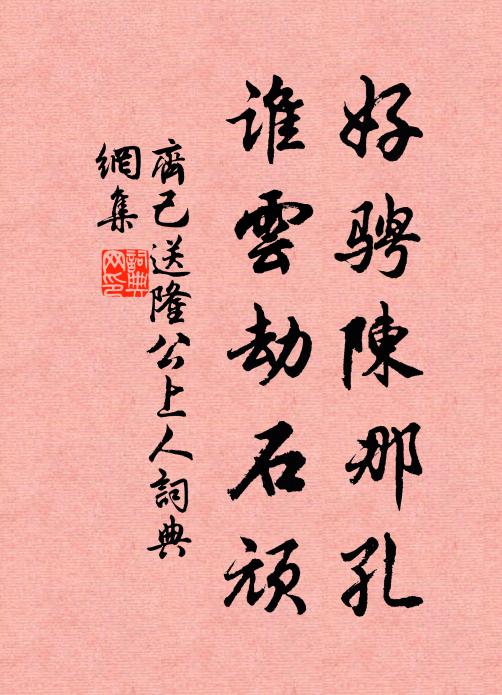 好骋陳那孔
谁雲劫石頑
齊己送隆公上人詞典
網集
詞典
网印